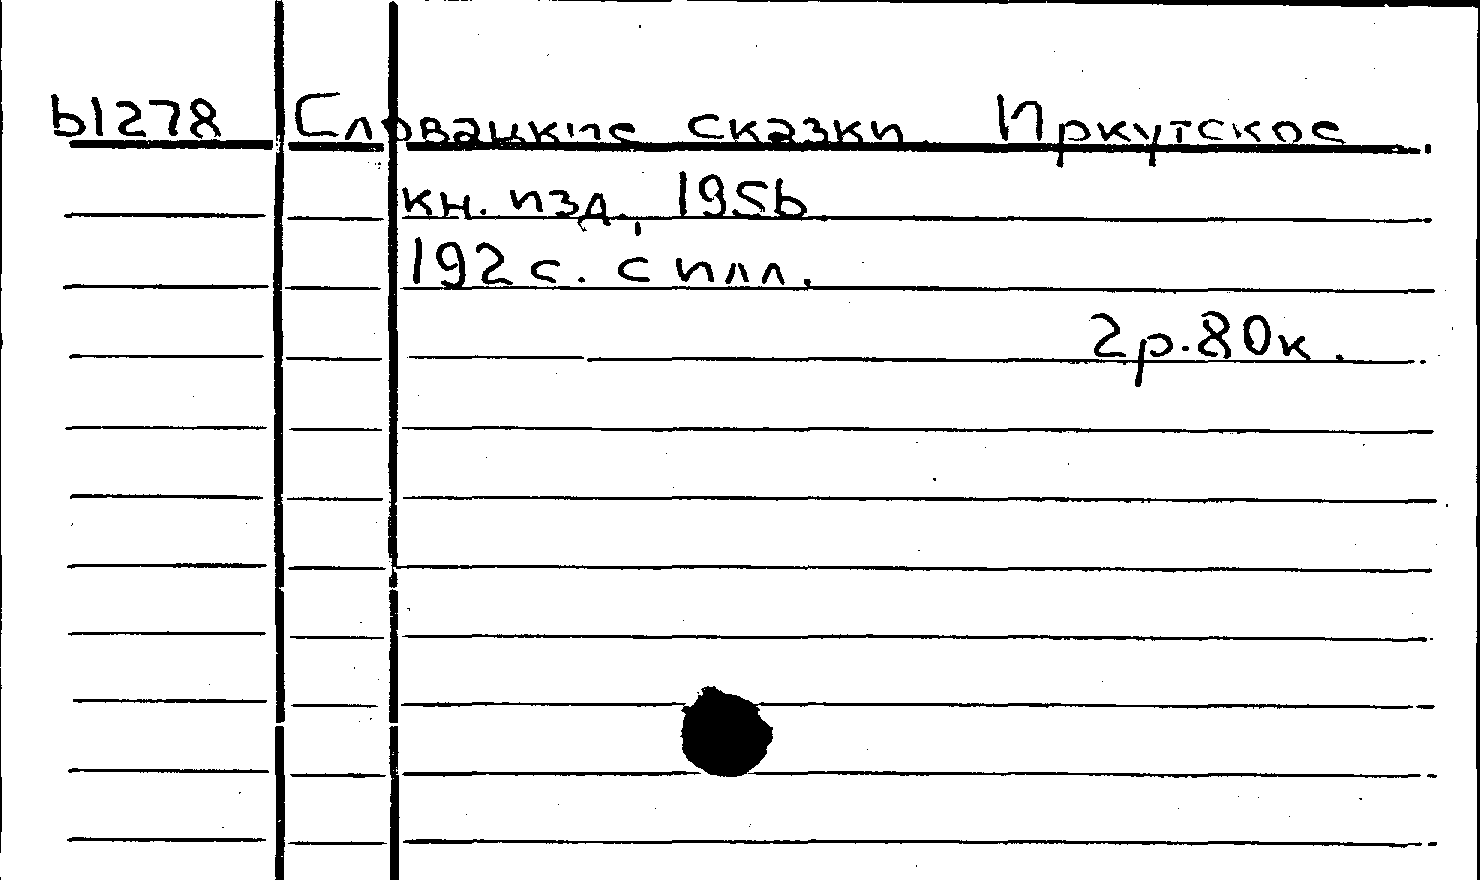 61278 Словацкие сказки. Иркутское
кн. изд., 1956.
192 с. с илл.
2р.80к.